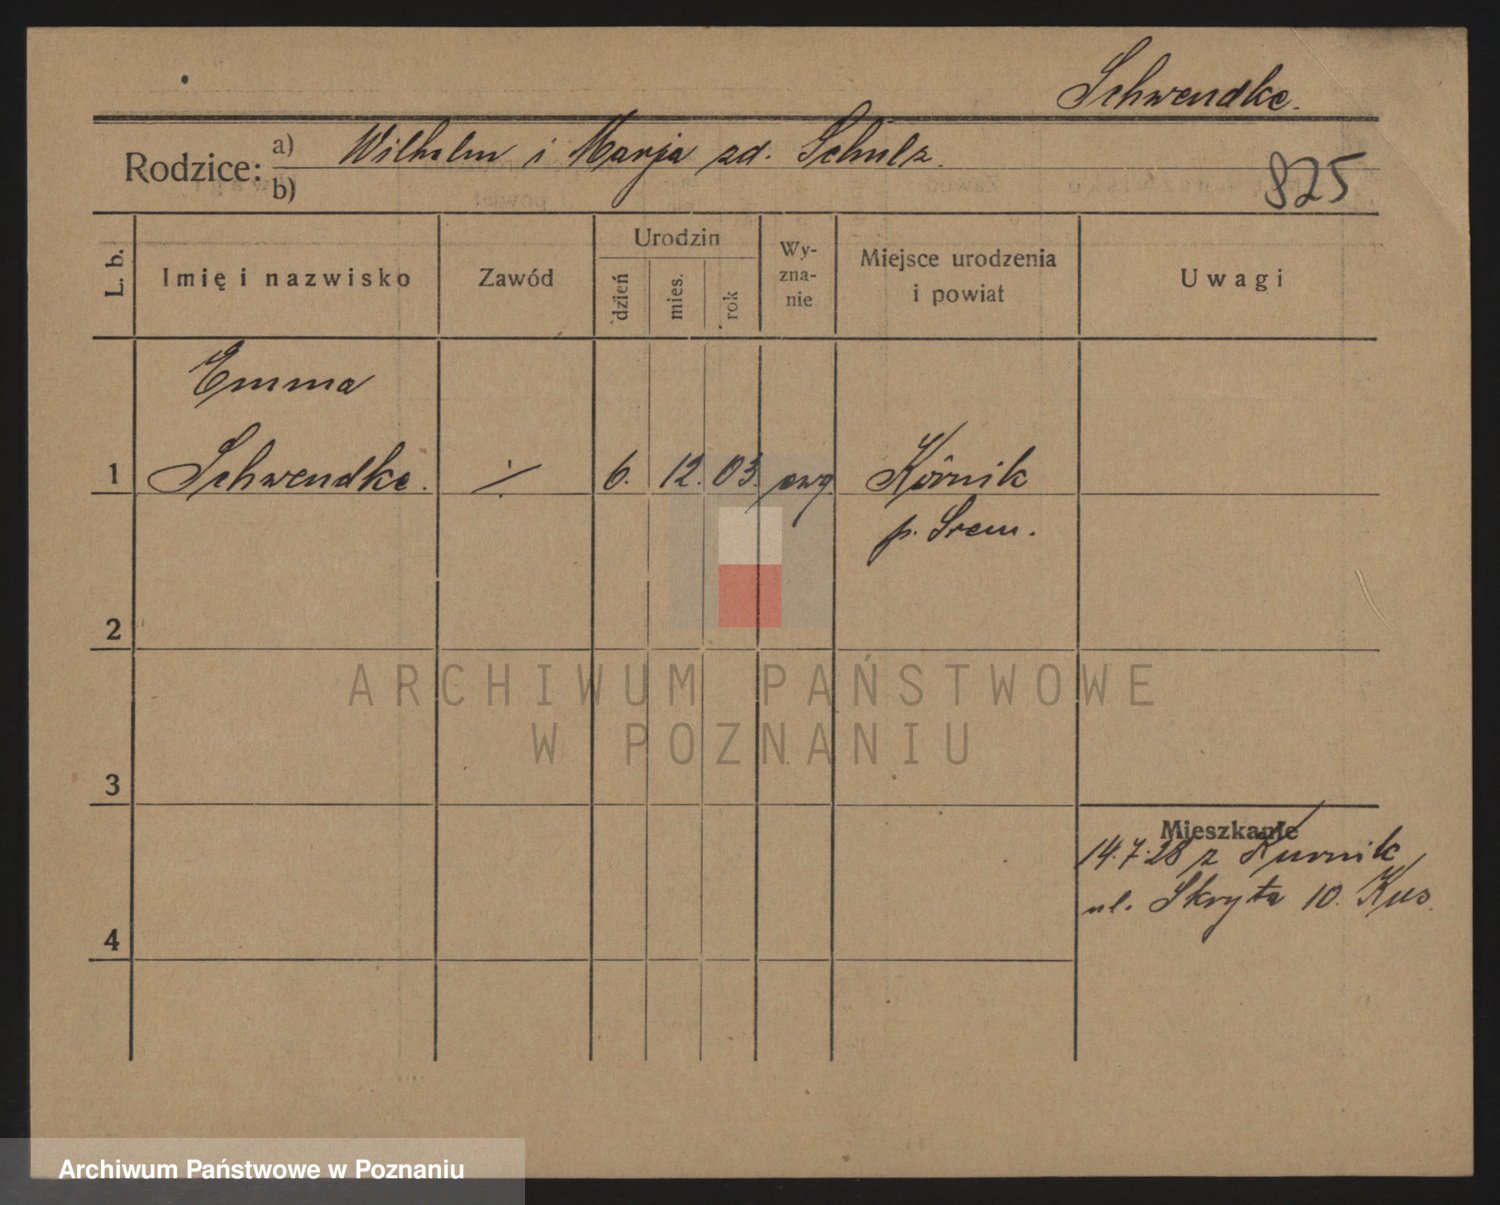 Schwendke.
Rodzice: a) Wilhelm i Marja zd. Schulz.
b)
825
L. b.
Imię i nazwisko
Zawód
Urodzin
dzień
mies.
rok
Wy-
zna-
nie
Miejsce urodzenia
i powiat
Uwagi
Emma
1 Schwendke. ./. 6. 12. 03. ewg Kórnik
p. Śrem.
2
ARCHIWUM PAŃSTWOWE
W POZNANIU
3
Mieszkanie
14.7.28 z Kurnik
ul. Skryta 10. Kus.
4
Archiwum Państwowe w Poznaniu